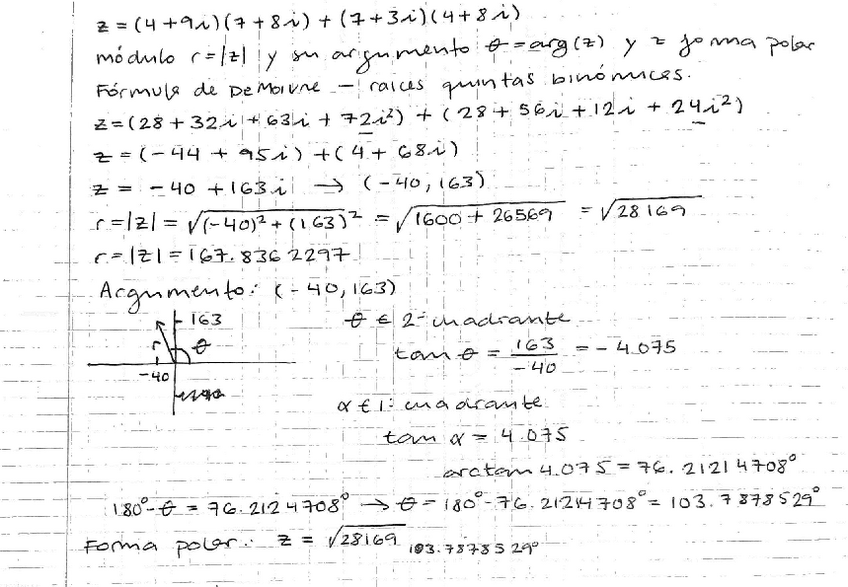 z = (4+9i)(7+8i) + (7+3i)(4+8i)
módulo r=|z| y su argumento θ = arg(z) y z forma polar
Fórmula de DeMoivre – raíces quintas binómicas.
z=(28 + 32i + 63i + 72i²) + (28 + 56i + 12i + 24i²)
z = (-44 + 95i) + (4 + 68i)
z = -40 + 163i → (-40, 163)
r=|z| = √(-40)² + (163)² = √1600 + 26569 = √28169
r=|z| = 167.8362297
Argumento: (-40, 163)
163
θ ∈ 2º cuadrante
r θ
tan θ = 163/-40 = -4.075
-40
α ∈ 1: cuadrante
tan α = 4.075
arctan 4.075 = 76.21214708°
180° - θ = 76.2124708° → θ = 180° - 76.21214708° = 103.7878529°
Forma polar: z = √28169 103.7878529°